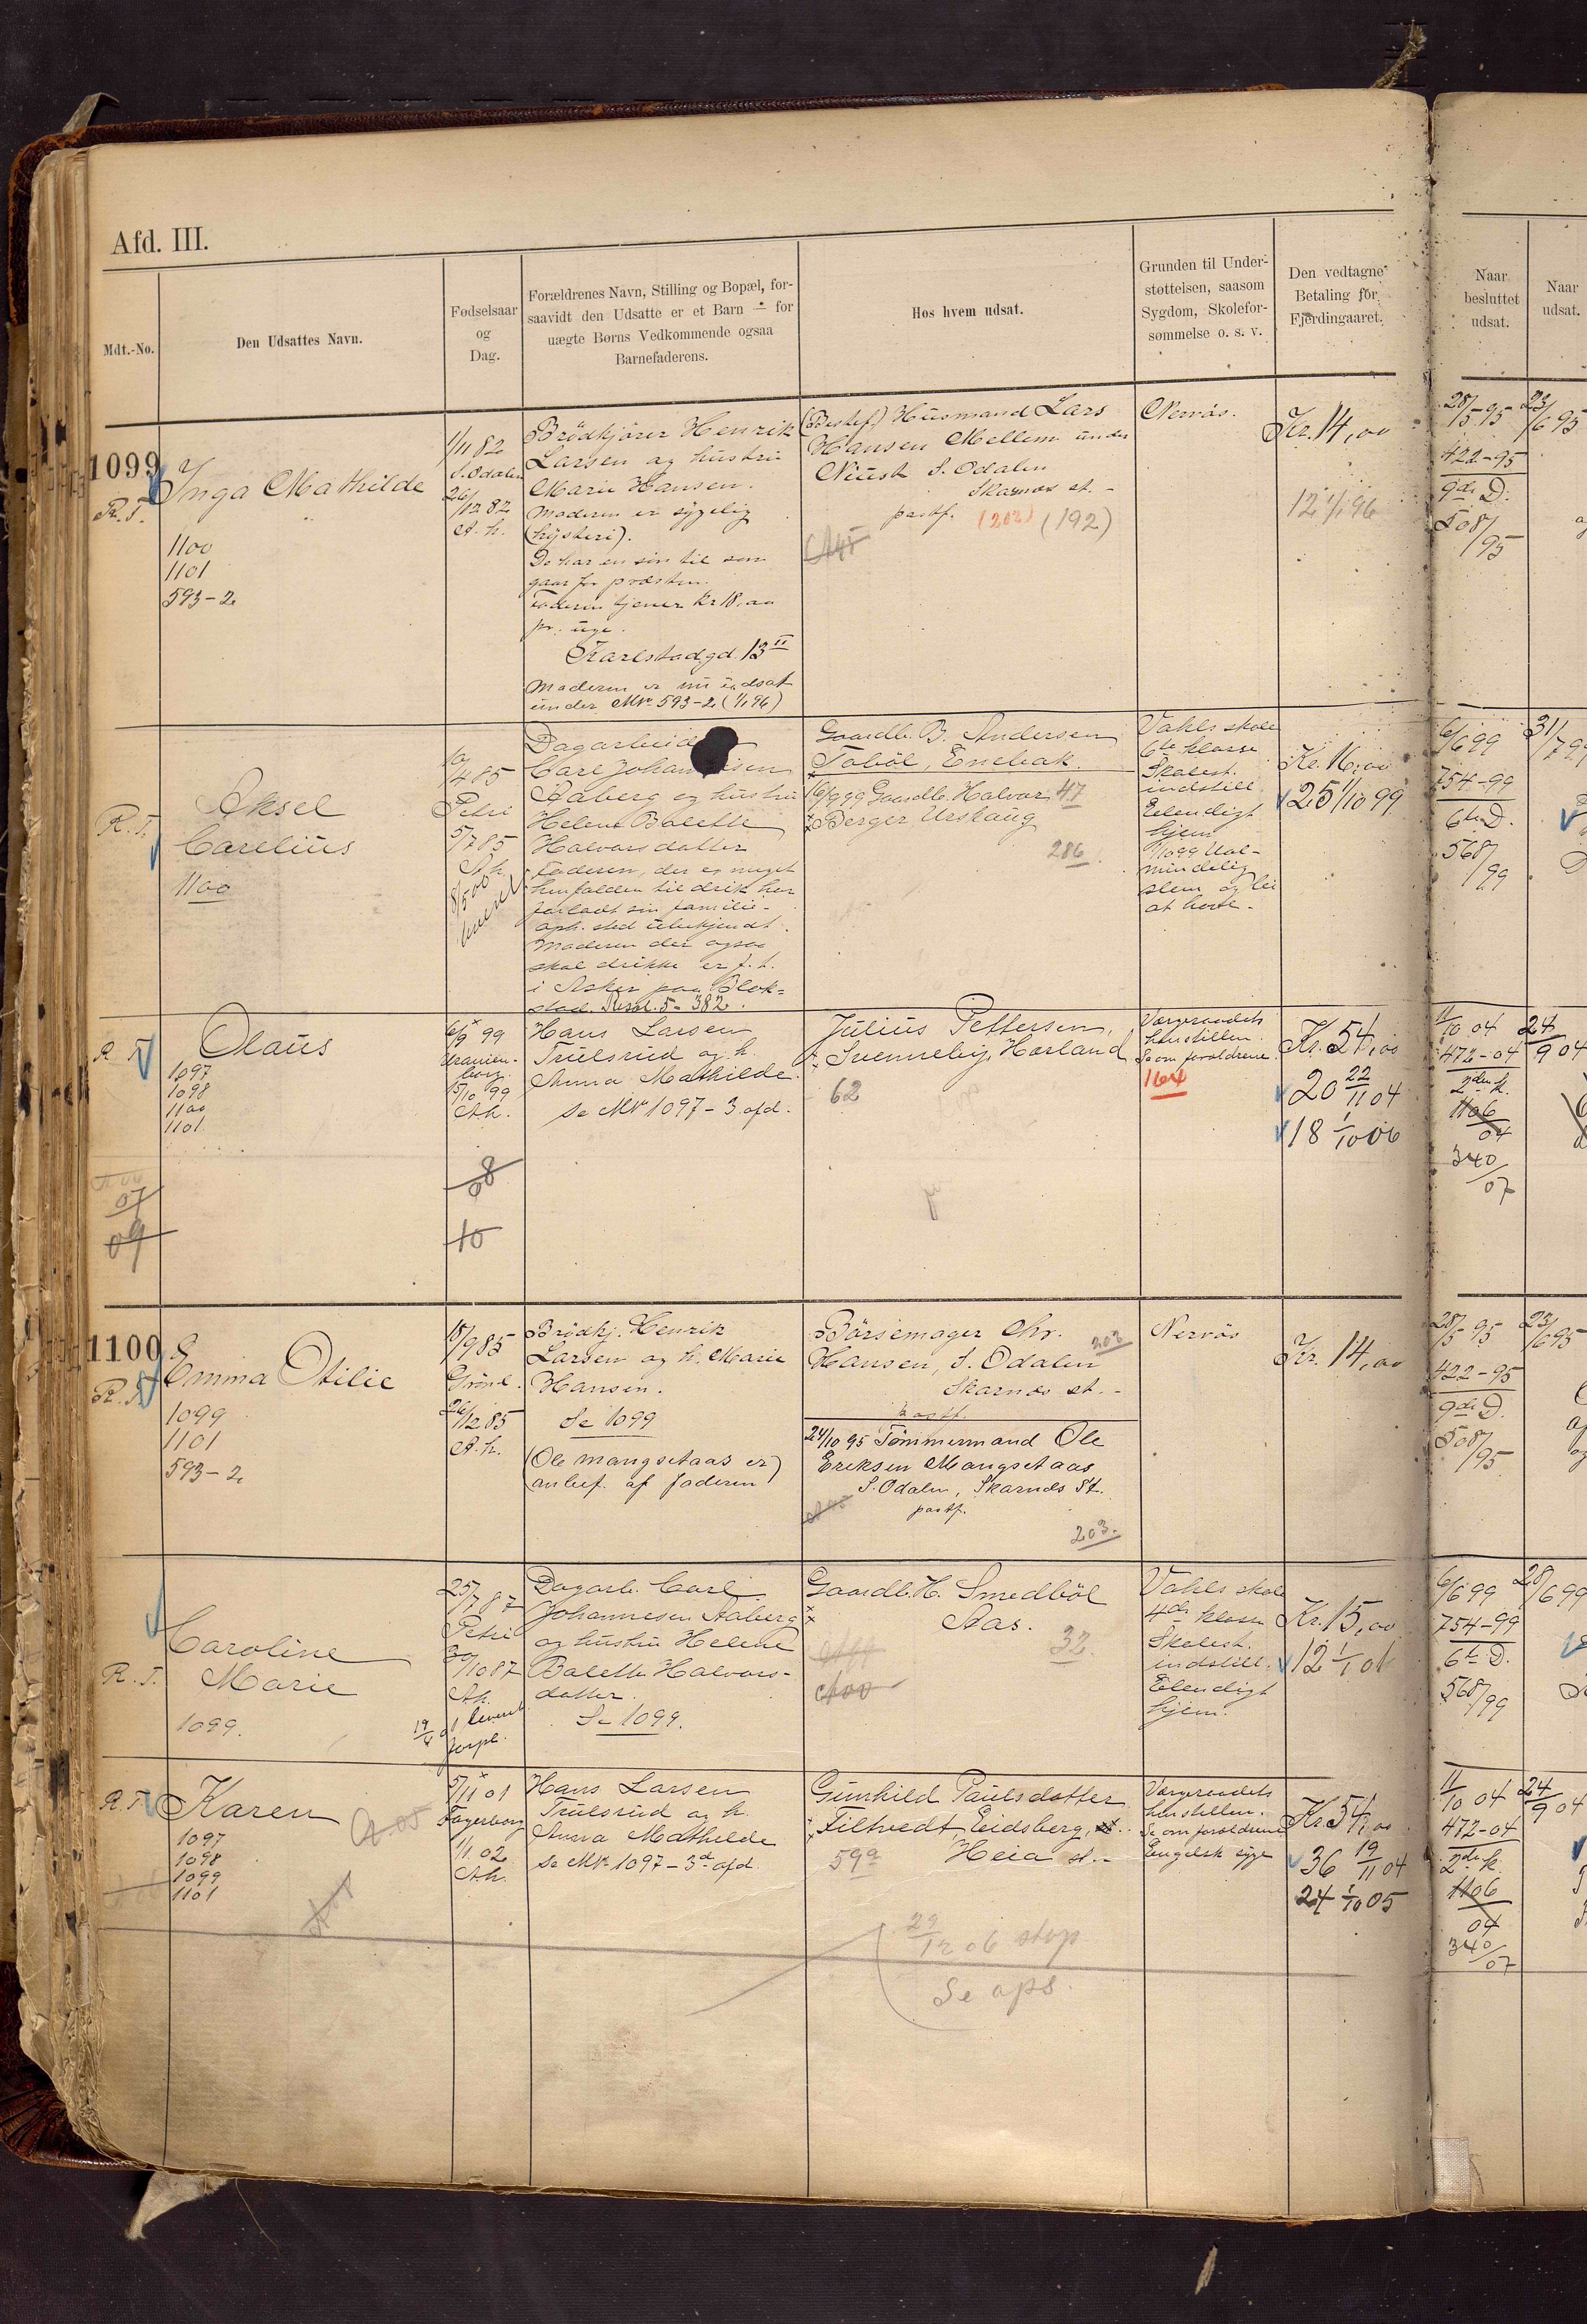 Afd. III.
Mdt.-No.
Den Udsattes Navn.
Fødselsaar
og
Dag.
Forældrenes Navn, Stilling og Bopæl, for-
saavidt den Udsatte er et Barn — for
uægte Børns Vedkommende ogsaa
Barnefaderens.
Hos hvem udsat.
Grunden til Under-
støttelsen, saasom
Sygdom, Skolefor-
sømmelse o. s. v.
Den vedtagne
Betaling for
Fjerdingaaret.
Naar
besluttet
udsat.
Naar
udsat.
1099
R. T.
Inga Mathilde
1100
1101
593-2
1/11 82
S. Odalen
26/12 82
A. h.
Brödkjörer Henrik
Larsen og hustru
Marie Hansen.
Moderen er sygelig
(hysteri).
De har en sön til som
gaar for præsten.
Faderen tjener Kr 18,00
pr. uge.
Karlstadgd. 13 II
Moderen er nu udsat
under Nr. 593-2 (1/1 96)
(Bestef.) Husmand Lars
Hansen Mellem under
Niust S. Odalen
Skarnæs st. -
postf.
(202) (192)
Nervös.
Kr. 14,00
12 1/1 96
28/5 95
422-95
9de D.
508/95
23/6 95
R. T.
Aksel
Carelius
1100
10/4 85
Petri
5/7 85
A.h.
8/5 00
Dagarbeid
Carl Johan sen
Aaberg og hustru
Helene Bolette
Halvorsdatter
Faderen, der er meget
henfalden til drik har
forladt sin familie -
oph. sted ubekjendt.
Moderen der ogsaa
skal drikke er f. t.
i Asker paa Blok=
stad. Resol. 5-382.
Gaardb. B. Andersen
Taböl, Enebak.
16/9 99 Gaardb. Halvor 47
Berger Urskaug
286
Vahls skole
6te klasse
Skolest.
indstill.
Elendigt
hjem
1/10 99 Ual-
mindelig
slem og lei
at have.
Kr. 16,00
25 1/10 99
6/6 99
754-99
6te D.
568/99
31/7 99
R. T.
Olaus
1097
1098
1100
1101
07
09
6/9 99
Uranien-
borg.
15/10 99
A.h.
08
10
Hans Larsen
Trulsrud og h.
Anna Mathilde.
se Nr. 1097 - 3 afd.
Julius Pettersen,
Svenneby, Hærland
62
Værgeraadets
henstillen.
Se om forældrene
164
Kr. 54,00
20 22/11 04
18 1/10 06
11/10 04
472-04
2den k.
1106/04
340/07
24/9 04
1100
R. T.
Emma Otilie
1099
1101
593-2
18/9 85
Grönl.
26/12 85
A. h.
Brödkj. Henrik
Larsen og h. Marie
Hansen.
Se 1099
(Ole Mangsetaas er)
anbef. af faderen
Börsemager Chr. 203
Hansen, S. Odalen
Skarnæs st. -
postf.
24/10 95 Tömmermand Ole
Eriksen Mangsetaas
S. Odalen, Skarnæs St.
postf.
203.
Nervös
Kr. 14,00
28/5 95
422-95
9de D.
508/95
23/6 95
R. T.
Caroline
Marie
1099.
25/7 87
Petri
30/10 87
A.h.
19/4 01 levert
forpl.
Dagarb. Carl
Johannesen Aaberg
og hustru Helene
Bolette Halvors-
datter.
Se 1099.
Gaardb. H. Smedböl
Aas.
32
Vahls skole
4de klasse
Skolest.
indstill.
Elendigt
hjem.
Kr. 15,00
12 1/1 01
6/6 99
754-99
6te D.
568/99
28/6 99
R. T.
Karen
1097
1098
1099
1101
5/11 01
Fagerborg
1/1 02
A.h.
Hans Larsen
Trulsrud og h.
Anna Mathilde
se Nr. 1097 - 3d afd.
Gunhild Paulsdatter
Filtvedt, Eidsberg,
59a Heia st. -
Værgeraadets
henstillen.
Se om forældrene
Engelsk syge
Kr. 54,00
36 19/11 04
24 1/10 05
11/10 04
472-04
2den k.
1106/04
340/07
24/9 04
29/12 06 stop
Se ops.